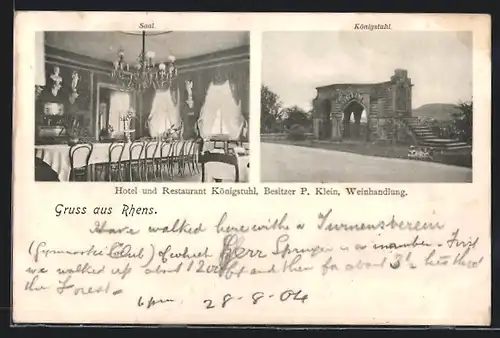 Saal.
Königstuhl.
Hotel und Restaurant Königstuhl, Besitzer P. Klein, Weinhandlung.
Gruss aus Rhens.
Have walked here with a Turnensverein
(Gymnastic Club) of which Herr Springer is a member. First
we walked up about 1200 ft and then for about 3½ hrs thro'
the Forest.
6 pm. 28-8-04